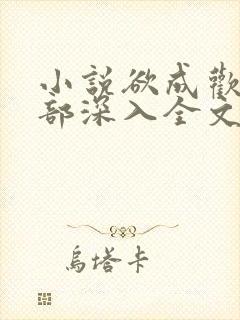 小說欲成歡
部深入全文
烏塔卡